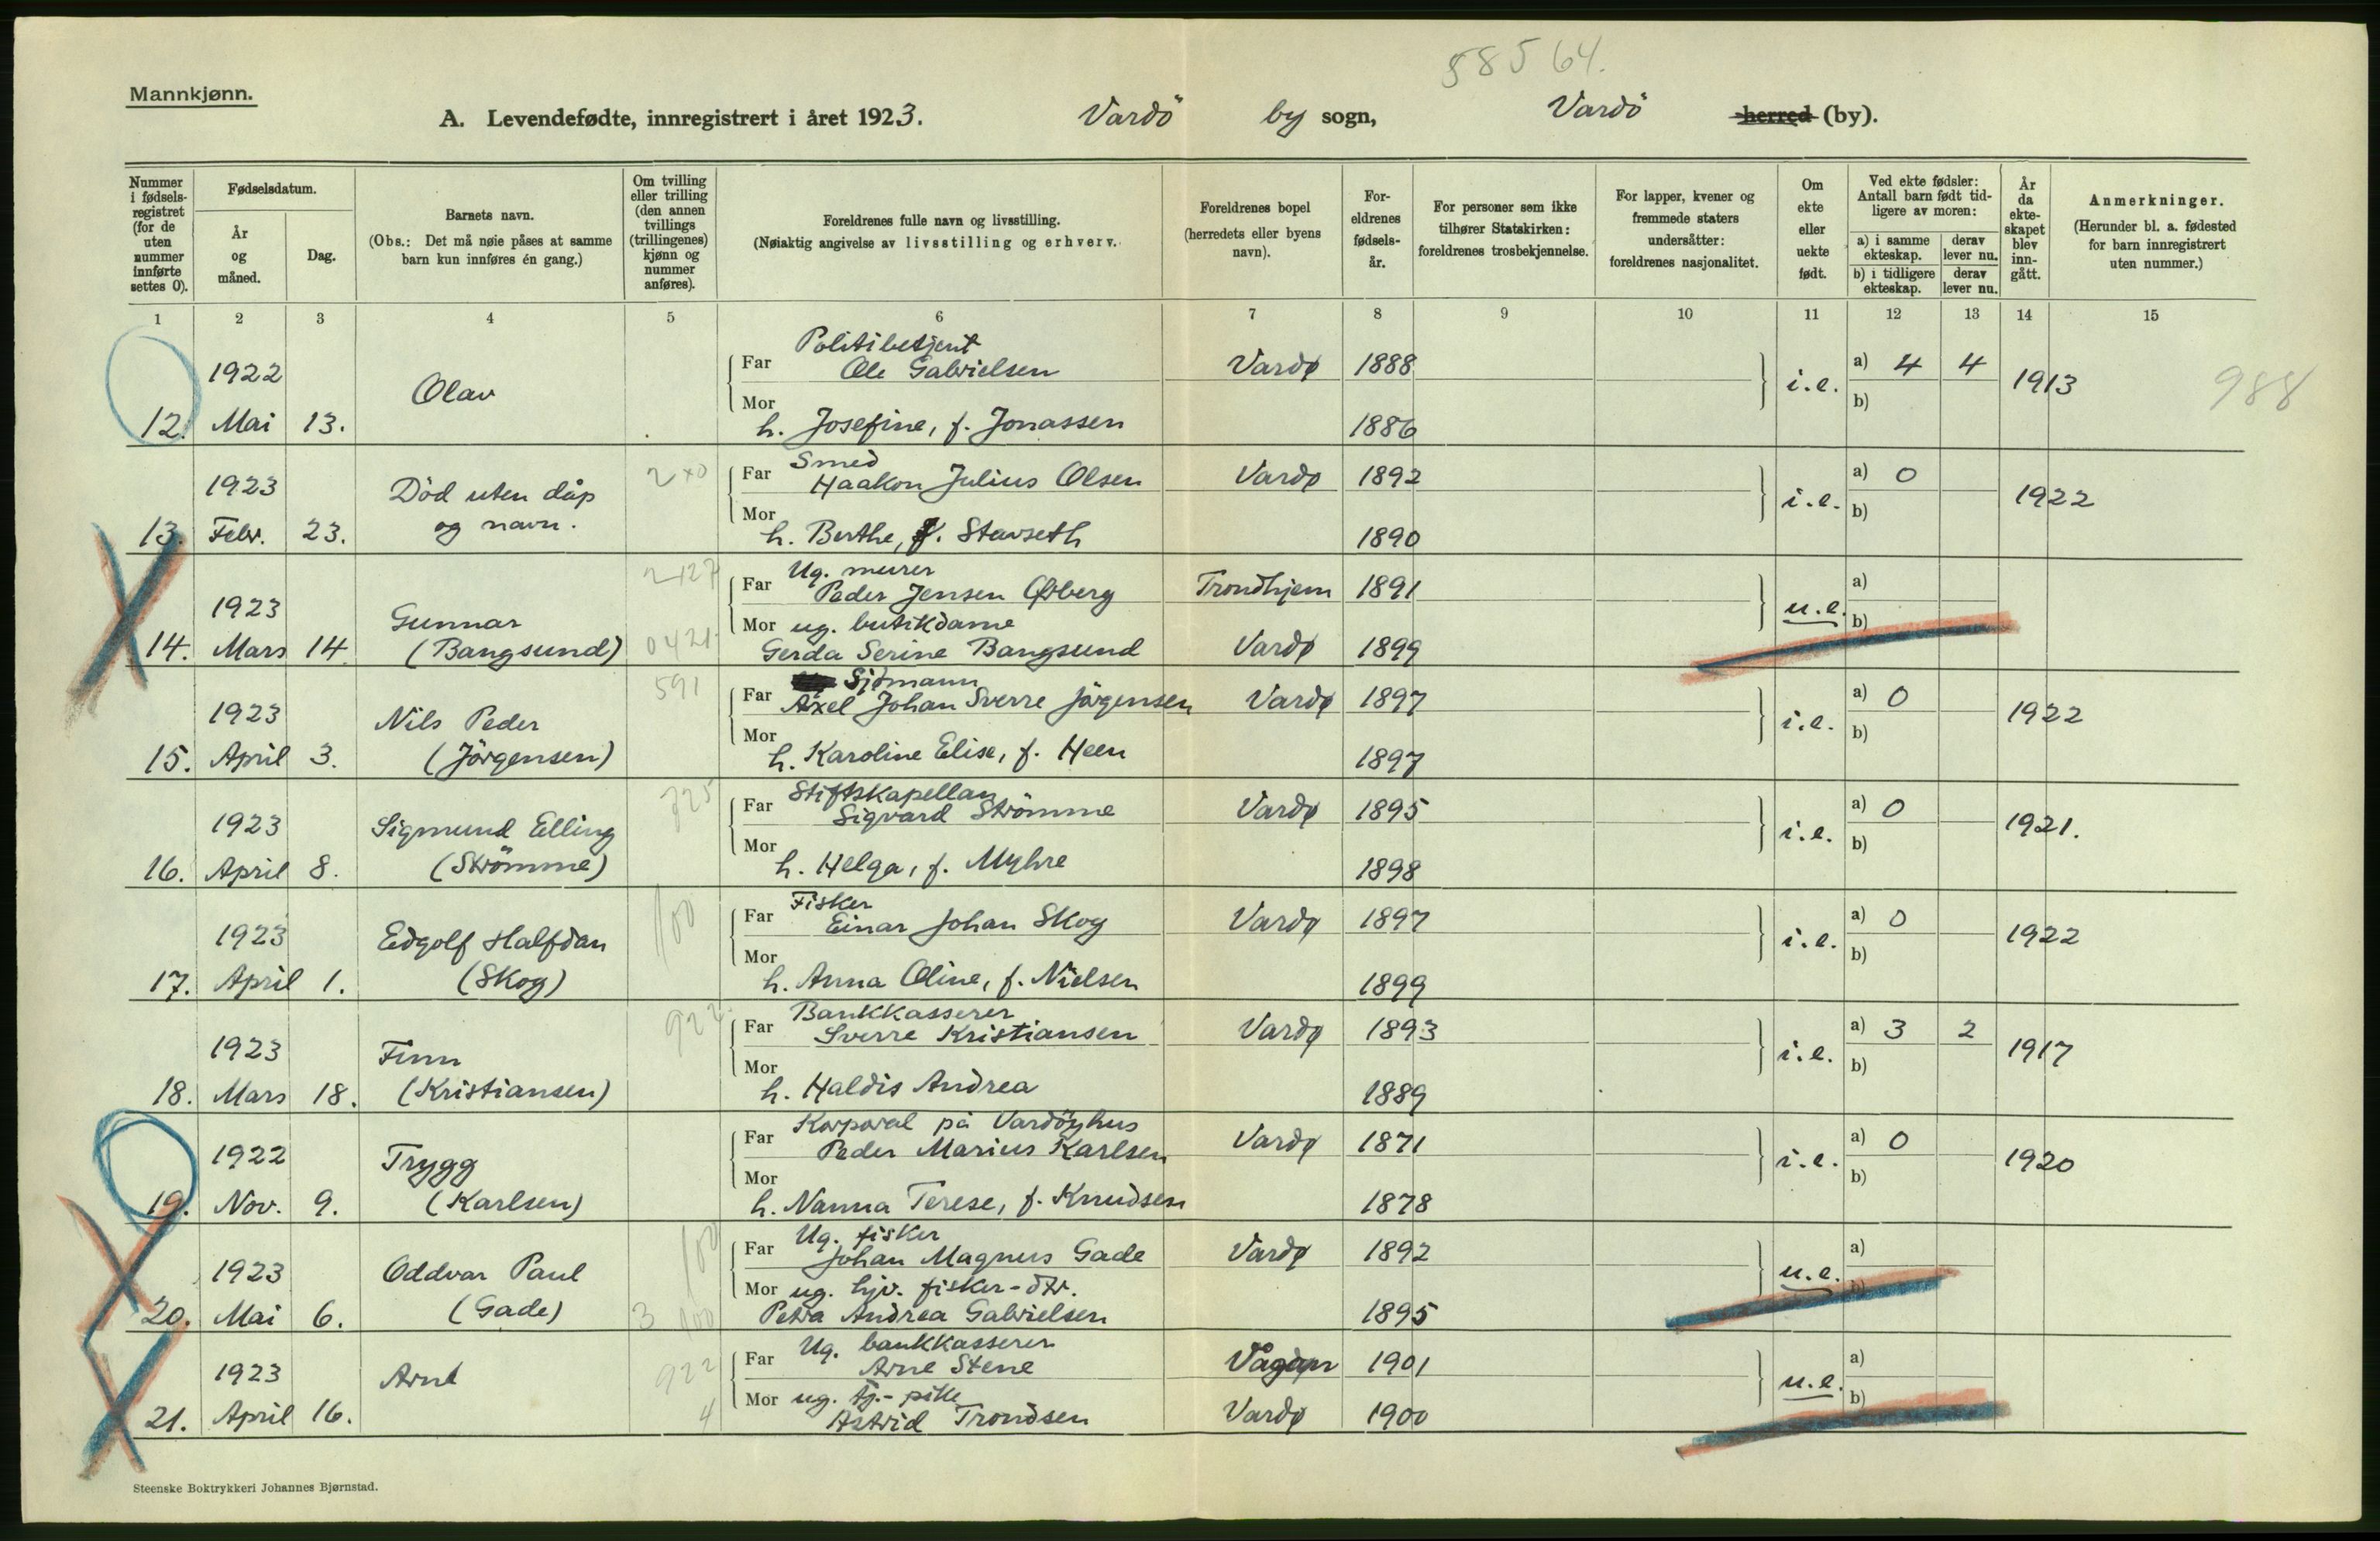 58564.
Mannkjønn.
A. Levendefødte, innregistrert i året 1923. Vardö by sogn, Vardö herred (by).
Nummer i fødselsregistret (for de uten nummer innførte settes 0).
Fødselsdatum.
År og måned.
Dag.
Barnets navn.
(Obs.: Det må nøie påses at samme barn kun innføres én gang.)
Om tvilling eller trilling (den annen tvillings (trillingenes) kjønn og nummer anføres).
Foreldrenes fulle navn og livsstilling.
(Nøiaktig angivelse av livsstilling og erhverv.)
Foreldrenes bopel (herredets eller byens navn).
Foreldrenes fødselsår.
For personer som ikke tilhører Statskirken: foreldrenes trosbekjennelse.
For lapper, kvener og fremmede staters undersåtter: foreldrenes nasjonalitet.
Om ekte eller uekte født.
Ved ekte fødsler: Antall barn født tidligere av moren:
a) i samme ekteskap. derav lever nu.
b) i tidligere ekteskap. derav lever nu.
År da ekteskapet blev inngått.
Anmerkninger.
(Herunder bl. a. fødested for barn innregistrert uten nummer.)
1 2 3 4 5 6 7 8 9 10 11 12 13 14 15
Politibetjent
1922 Far Ole Gabrielsen Vardø 1888 a) 4 4
Olav i.e. 1913 988
12. Mai 13. Mor h. Josefine, f. Jonassen 1886 b)
Smed
1923 Død uten dåp 2 Far Haakon Julius Olsen Vardø 1892 a) 0
og navn. i.e. 1922
13. Febr. 23. Mor h. Berthe, f. Stavseth 1890 b)
Ug. murer
1923 Gunnar Far Peder Jensen Østberg Trondhjem 1891 a)
Mor ug. butikdame u.e. b)
14. Mars 14 (Bangsund) 0421 Gerda Serine Bangsund Vardø 1899
Sjømann
1923 Nils Peder 591 Far Axel Johan Sverre Jörgensen Vardø 1897 a) 0
i.e. 1922
15. April 3. (Jörgensen) Mor h. Karoline Elise, f. Heen 1897 b)
Stiftskapellan
1923 Sigmund Elling Far Sigvard Strömme Vardø 1895 a) 0
i.e. 1921.
16. April 8. (Strömme) Mor h. Helga, f. Myhre 1898 b)
Fisker
1923 Edgolf Halfdan 100 Far Einar Johan Skog Vardø 1897 a) 0
i.e. 1922
17. April 1. (Skog) Mor h. Anna Oline, f. Nielsen 1899 b)
Bankkasserer
1923 Finn 922 Far Sverre Kristiansen Vardø 1893 a) 3 2
i.e. 1917
18. Mars 18. (Kristiansen) Mor h. Haldis Andrea 1889 b)
Korporal på Vardöyhus
1922 Trygg Far Peder Marius Karlsen Vardø 1871 a) 0
i.e. 1920
19. Nov. 9. (Karlsen) Mor h. Nanna Terese, f. Knudsen 1878 b)
Ug. fisker
1923 Oddvar Paul 100 Far Johan Magnus Gade Vardø 1892 a)
Mor ug. hjv. fisker-dtr. u.e. b)
20. Mai 6. (Gade) 3 100 Petra Andrea Gabrielsen 1895
Ug. bankkasserer
1923 Arne 922 Far Arne Stene Vågan 1901 a)
Mor ug. tj.-pike u.e. b)
21. April 16. 4 Astrid Trondsen Vardø 1900
Steenske Boktrykkeri Johannes Bjørnstad.